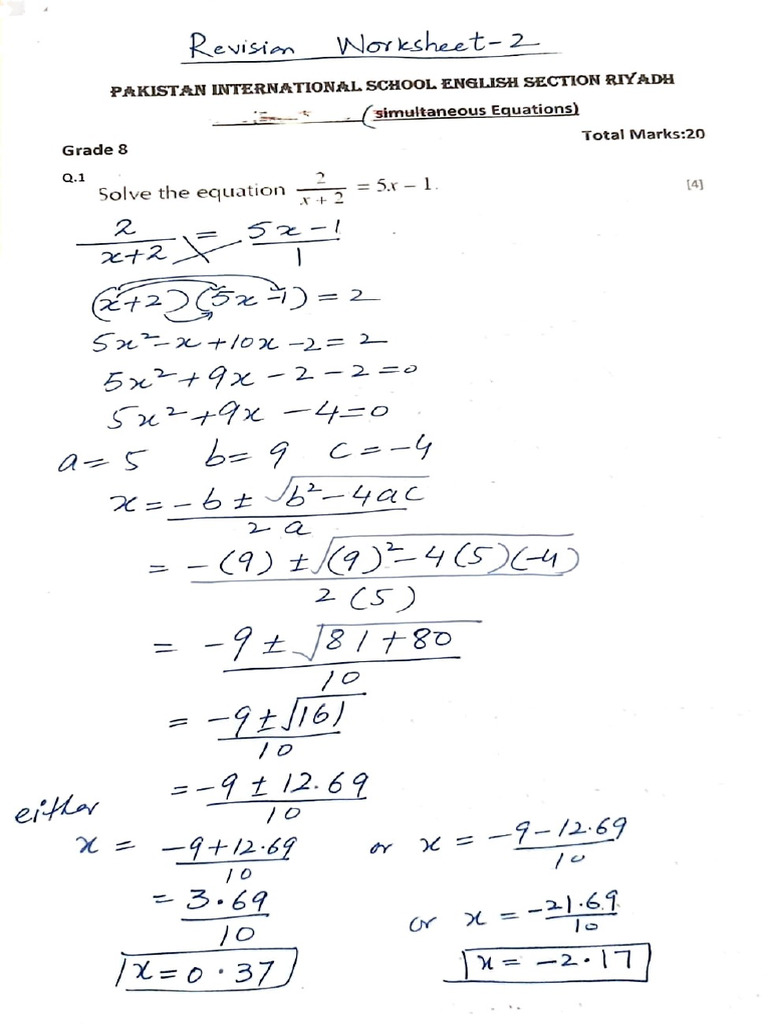 Revision Worksheet-2
PAKISTAN INTERNATIONAL SCHOOL ENGLISH SECTION RIYADH
(simultaneous Equations)
Total Marks:20
Grade 8
Q.1 Solve the equation 2/(x + 2) = 5x – 1. [4]
2/(x+2) = (5x-1)/1
(x+2)(5x-1) = 2
5x²-x+10x-2 = 2
5x²+9x-2-2=0
5x²+9x-4=0
a=5 b=9 c=-4
x = (-b ± √(b²-4ac))/(2a)
= (-(9) ± √((9)²-4(5)(-4)))/(2(5))
= (-9 ± √(81+80))/10
= (-9±√161)/10
= (-9 ± 12.69)/10
either
x = (-9+12.69)/10 or x = (-9-12.69)/10
= 3.69/10 or x = -21.69/10
x=0.37 x = -2.17